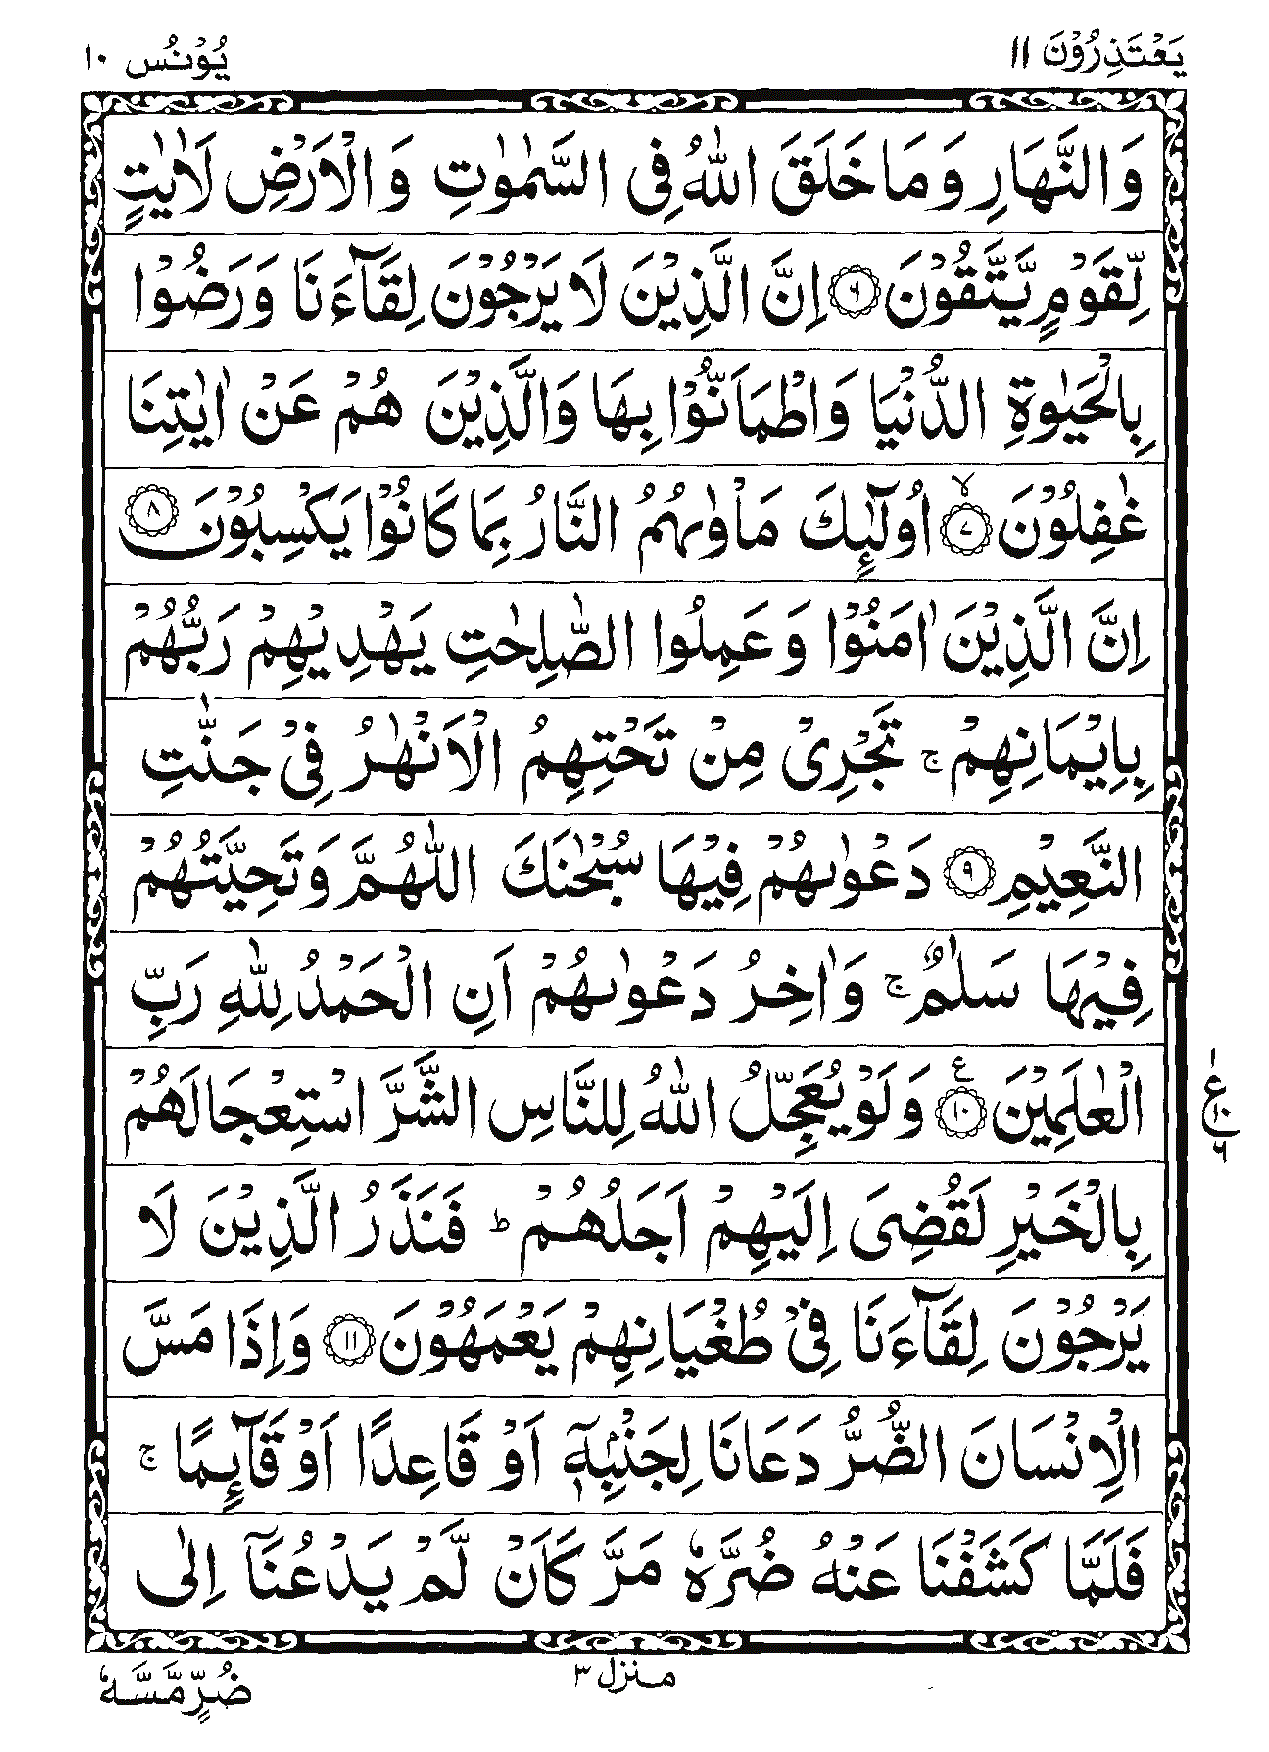 يَعْتَذِرُوْنَ ١١
يُوْنُس ١٠
وَالنَّهَارِ وَمَا خَلَقَ اللّٰهُ فِى السَّمٰوٰتِ وَالْاَرْضِ لَاٰيٰتٍ
لِّقَوْمٍ يَّتَّقُوْنَ ۝٦ اِنَّ الَّذِيْنَ لَا يَرْجُوْنَ لِقَآءَنَا وَرَضُوْا
بِالْحَيٰوةِ الدُّنْيَا وَاطْمَاَنُّوْا بِهَا وَالَّذِيْنَ هُمْ عَنْ اٰيٰتِنَا
غٰفِلُوْنَ ۝٧ۙ اُولٰٓئِكَ مَاْوٰىهُمُ النَّارُ بِمَا كَانُوْا يَكْسِبُوْنَ ۝٨
اِنَّ الَّذِيْنَ اٰمَنُوْا وَعَمِلُوا الصّٰلِحٰتِ يَهْدِيْهِمْ رَبُّهُمْ
بِاِيْمَانِهِمْ ۚ تَجْرِىْ مِنْ تَحْتِهِمُ الْاَنْهٰرُ فِىْ جَنّٰتِ
النَّعِيْمِ ۝٩ دَعْوٰىهُمْ فِيْهَا سُبْحٰنَكَ اللّٰهُمَّ وَتَحِيَّتُهُمْ
فِيْهَا سَلٰمٌ ۚ وَاٰخِرُ دَعْوٰىهُمْ اَنِ الْحَمْدُ لِلّٰهِ رَبِّ
الْعٰلَمِيْنَ ۝١٠ ع وَلَوْ يُعَجِّلُ اللّٰهُ لِلنَّاسِ الشَّرَّ اسْتِعْجَالَهُمْ
١ ع ١٠ ٦
بِالْخَيْرِ لَقُضِىَ اِلَيْهِمْ اَجَلُهُمْ ؕ فَنَذَرُ الَّذِيْنَ لَا
يَرْجُوْنَ لِقَآءَنَا فِىْ طُغْيَانِهِمْ يَعْمَهُوْنَ ۝١١ وَاِذَا مَسَّ
الْاِنْسَانَ الضُّرُّ دَعَانَا لِجَنْۢبِهٖٓ اَوْ قَاعِدًا اَوْ قَآئِمًا ۚ
فَلَمَّا كَشَفْنَا عَنْهُ ضُرَّهٗ مَرَّ كَاَنْ لَّمْ يَدْعُنَآ اِلٰى
منزل ٣
ضُرٍّ مَّسَّهٗ